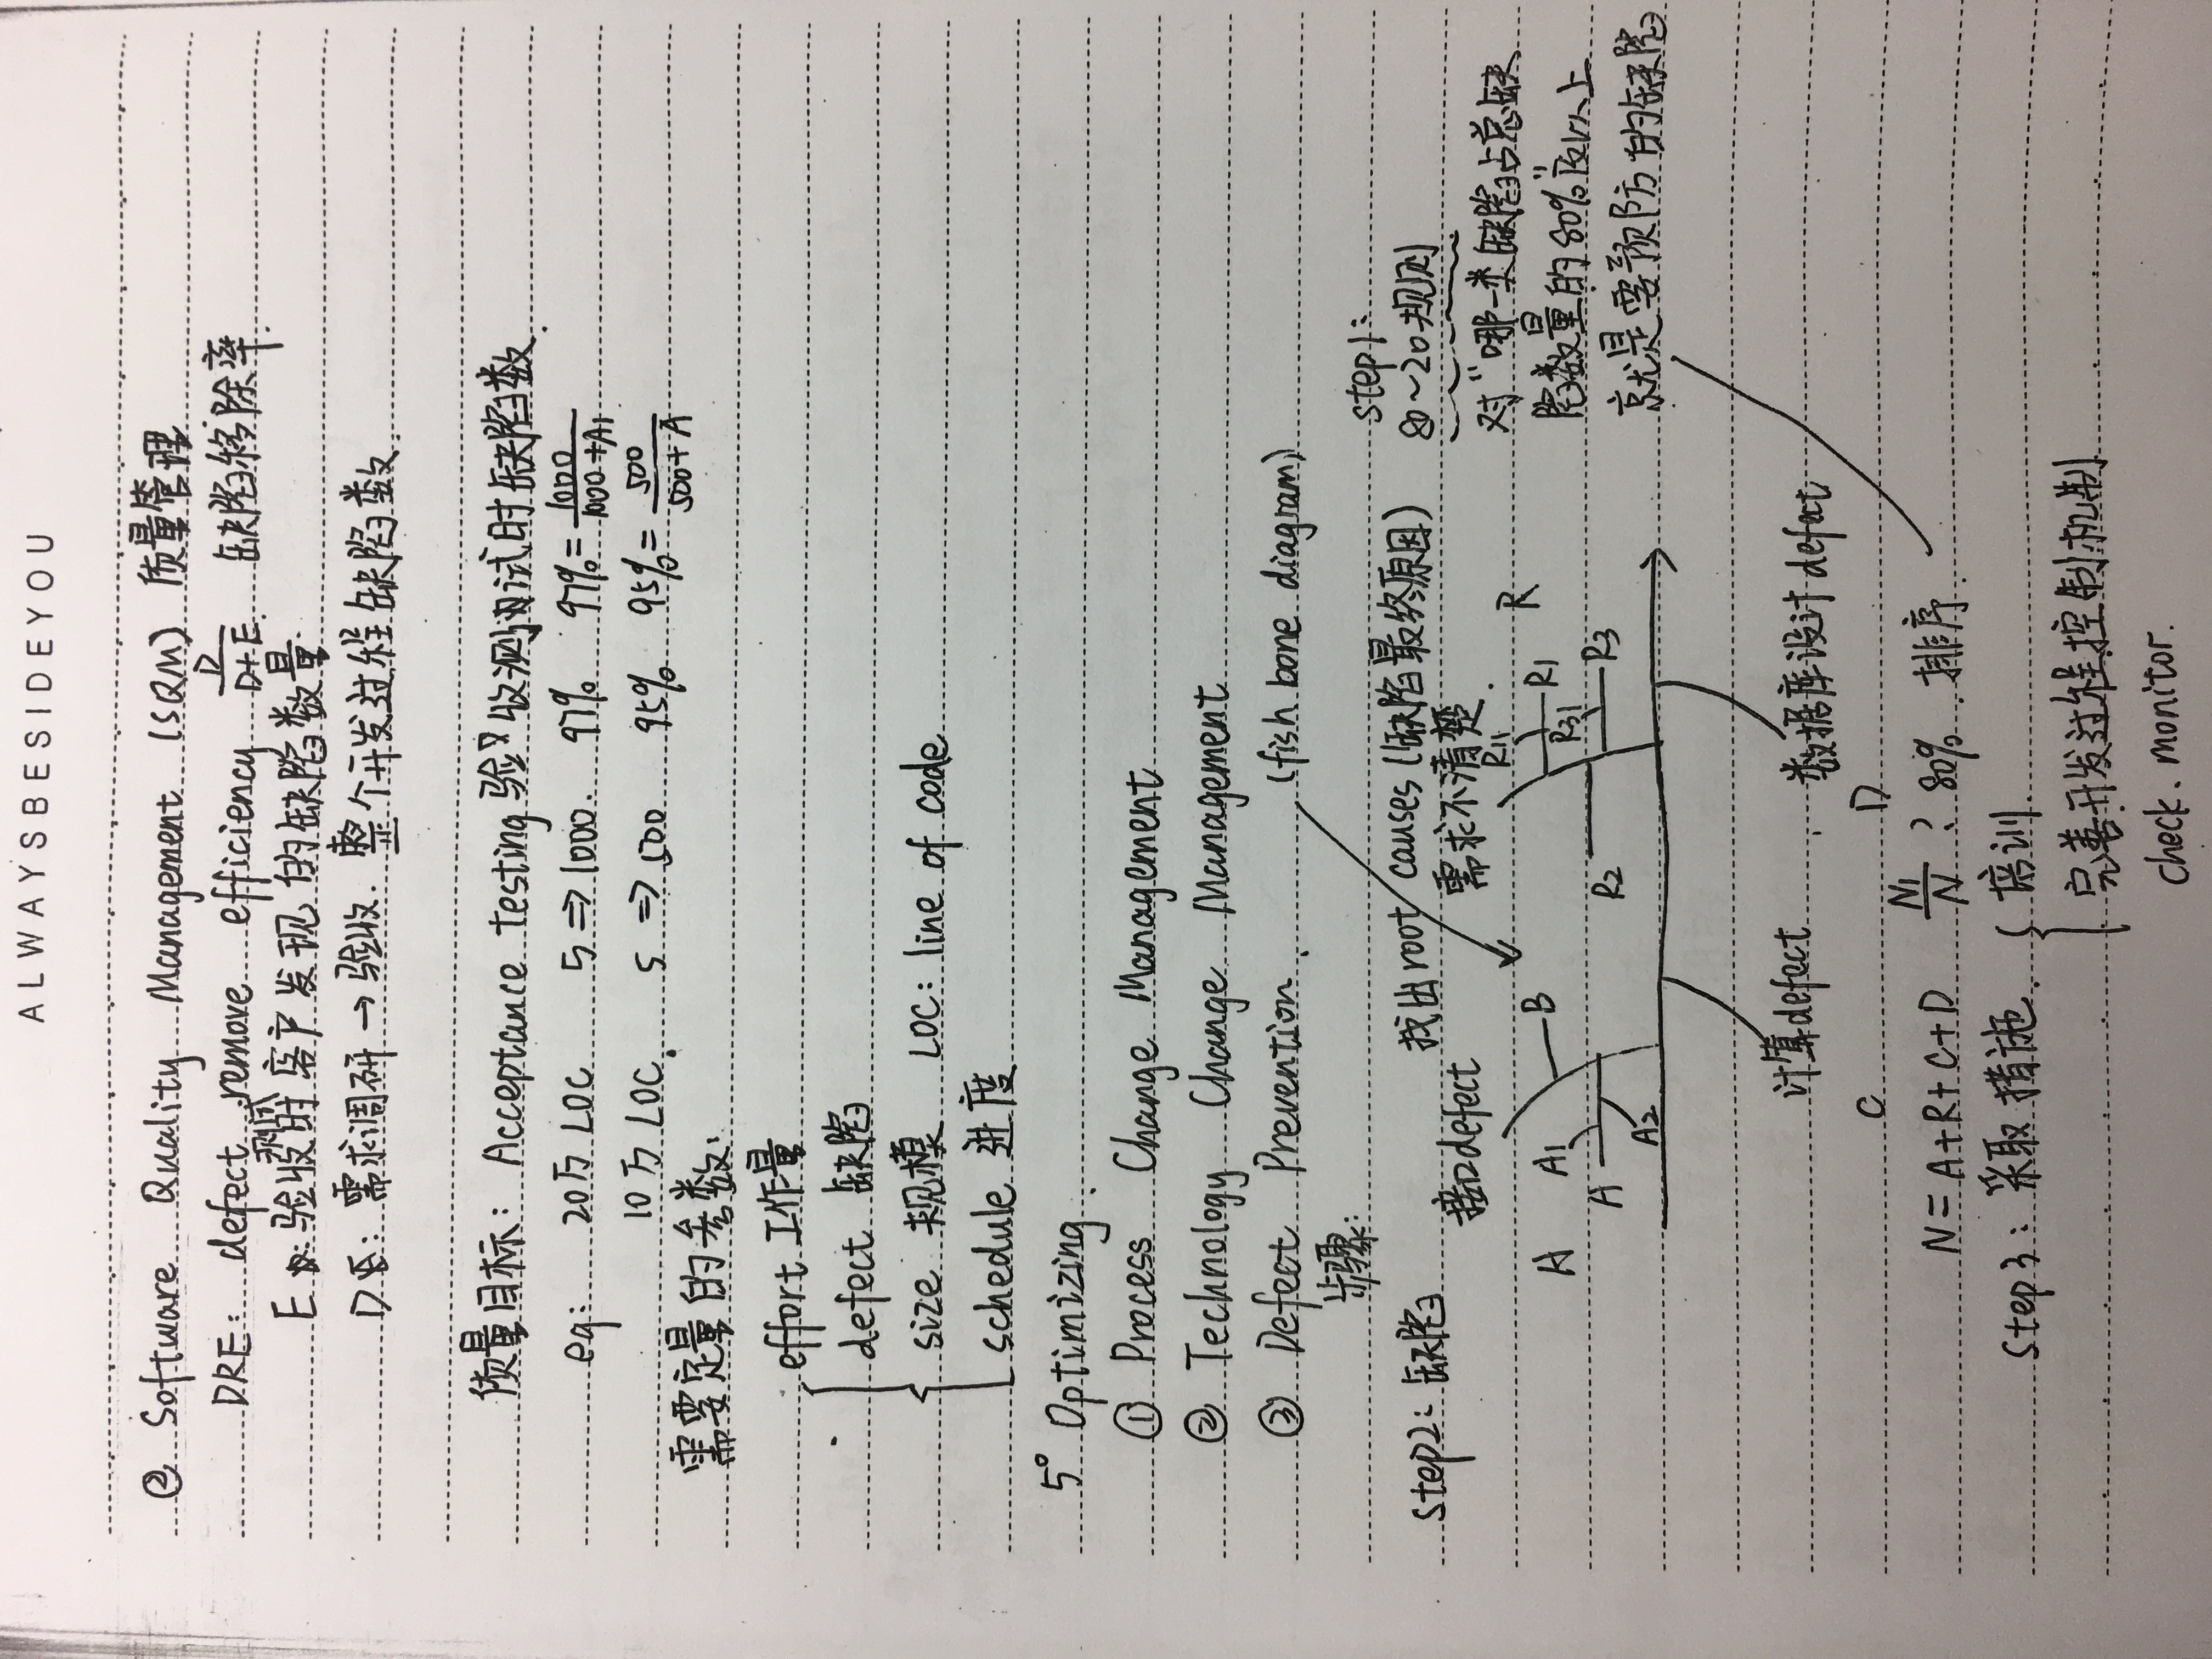 ALWAYSBESIDEYOU
② Software Quality Management (SQM) 质量管理
DRE: defect remove efficiency D/(D+E) 缺陷移除率.
E: 验收测试时客户发现的缺陷数量.
D: 需求调研 → 验收. 整个开发过程缺陷数.
质量目标: Acceptance testing 验收测试时缺陷数.
eg: 20万 LOC 5 => 1000. 97% 97% = 1000/(1000+A1)
10万 LOC. 5 => 500 95% 95% = 500/(500+A)
需要定量的参数:
effort 工作量
defect 缺陷
size 规模 LOC: line of code
schedule 进度
5° Optimizing.
① Process Change Management
② Technology Change Management
③ Defect Prevention. (fish bone diagram)
步骤:
step1:
80~20规则
对“哪一类缺陷占总缺
陷数量的80%”及以上
就是要预防的缺陷
step2: 缺陷 找出root causes (缺陷最终原因)
接口defect 需求不清楚.
A A1 B R11 R1 R
A A2 R2 R31 R3
计算defect 数据库设计defect
C D
N = A+R+C+D N1/N ? 80%. 排序.
step3: 采取措施. { 培训.
完善开发过程控制机制
check. monitor.